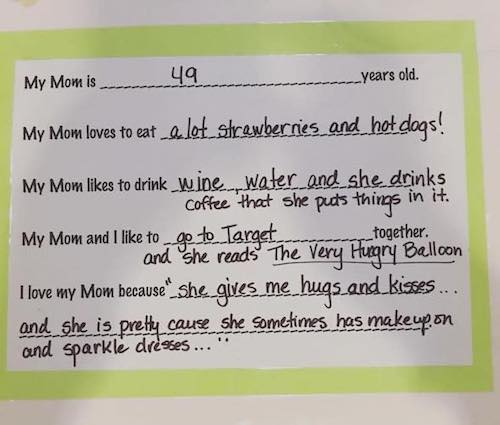 My Mom is 49 years old.
My Mom loves to eat a lot strawberries and hotdogs!
My Mom likes to drink wine, water and she drinks
coffee that she puts things in it.
My Mom and I like to go to Target together.
and she reads The Very Hugry Balloon
I love my Mom because "she gives me hugs and kisses...
and she is pretty cause she sometimes has makeup on
and sparkle dresses..."